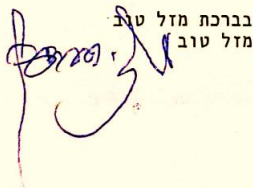 בברכת מזל טוב
מזל טוב